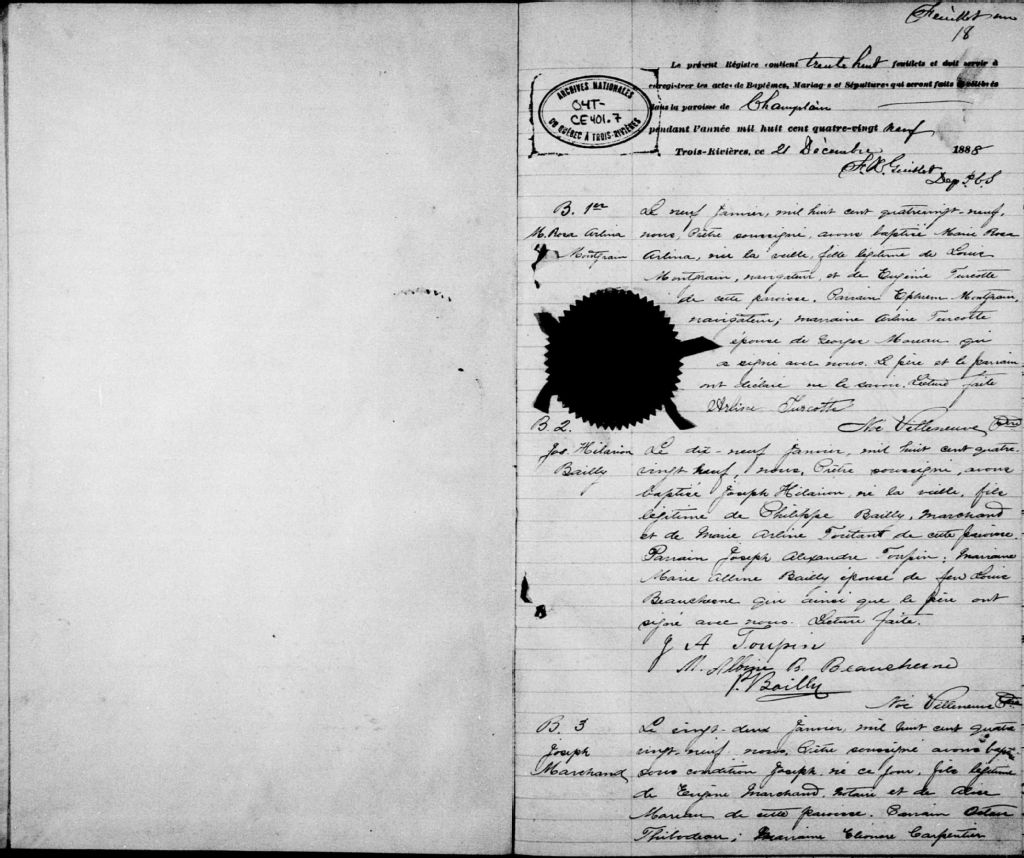 Feuillet un
18
Le présent Régistre contient trente huit feuillets et doit servir à
enregistrer les actes de Baptêmes, Mariages et Sépultures qui seront faits et célébrés
dans la paroisse de Champlain
pendant l'année mil huit cent quatre-vingt neuf
Trois-Rivières, ce 21 Décembre 1888
F. X. Guillet
Dep. P. C. S
ARCHIVES NATIONALES
04T-
CE401.7
DU QUÉBEC À TROIS-RIVIÈRES
B. 1er
M. Rosa Arlina
Montgrain
Le neuf Janvier, mil huit cent quatrevingt-neuf,
nous, Prêtre soussigné, avons baptisé Marie Rosa
Arlina, née la veille, fille légitime de Louis
Montgrain, navigateur, et de Eugénie Turcotte
de cette paroisse. Parrain Ephrem Montgrain,
navigateur; marraine Arline Turcotte
épouse de Georges Moreau qui
a signé avec nous. Le père et le parrain
ont déclaré ne le savoir. Lecture faite
Arline Turcotte
Noé Villeneuve Ptre
B. 2.
Jos. Hilarion
Bailly
Le dix-neuf Janvier, mil huit cent quatre
vingt neuf, nous, Prêtre soussigné, avons
baptisé Joseph Hilarion, né la veille, fils
légitime de Philippe Bailly, marchand
et de Marie Arline Toutant de cette paroisse.
Parrain Joseph Alexandre Toupin; marraine
Marie Albine Bailly épouse de feu Louis
Beauchesne qui ainsi que le père ont
signé avec nous. Lecture faite.
J A Toupin
M. Albine B. Beauchesne
P. Bailly
Noé Villeneuve Ptre
B. 3
Joseph
Marchand
Le vingt-deux Janvier, mil huit cent quatre
vingt-neuf nous, Prêtre soussigné avons baptisé
sous condition Joseph, né ce jour, fils légitime
de Eugène Marchand, notaire et de Alice
Moreau de cette paroisse. Parrain Octave
Thibodeau; Marraine Eleonore Carpentier